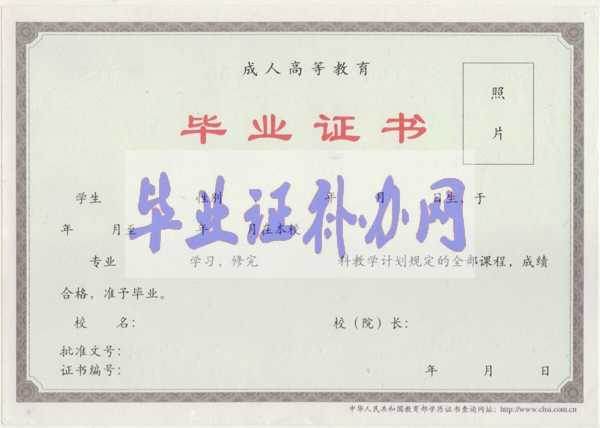 成人高等教育
照
片
毕业证书
学生 性别 年 月 日生,于
毕业证补办网
年 月至 年 月在本校
专业 学习,修完 科教学计划规定的全部课程,成绩
合格,准予毕业。
校 名: 校(院)长:
批准文号:
证书编号: 年 月 日
中华人民共和国教育部学历证书查询网址:http://www.chsi.com.cn